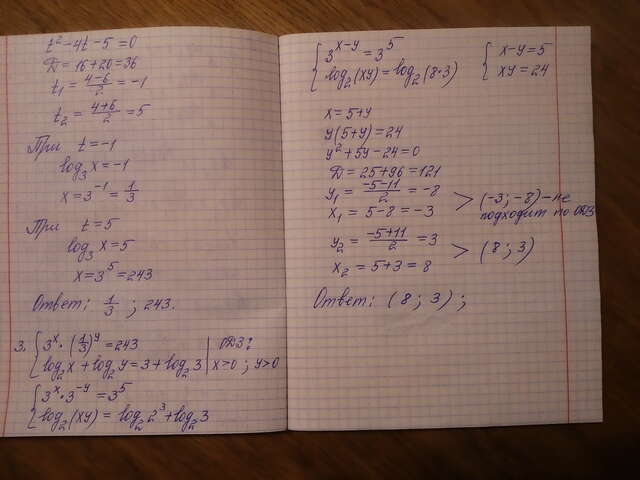 t² - 4t - 5 = 0
D = 16 + 20 = 36
t₁ = (4-6)/2 = -1
t₂ = (4+6)/2 = 5
При t = -1
log₃ x = -1
x = 3⁻¹ = 1/3
При t = 5
log₃ x = 5
x = 3⁵ = 243
Ответ: 1/3 ; 243.
3. { 3ˣ · (1/3)ʸ = 243 | ОДЗ:
log₂ x + log₂ y = 3 + log₂ 3 | x > 0 ; y > 0
{ 3ˣ · 3⁻ʸ = 3⁵
log₂ (xy) = log₂ 2³ + log₂ 3
{ 3ˣ⁻ʸ = 3⁵ { x - y = 5
log₂ (xy) = log₂ (8·3) xy = 24
x = 5 + y
y(5+y) = 24
y² + 5y - 24 = 0
D = 25 + 96 = 121
y₁ = (-5-11)/2 = -8
x₁ = 5 - 8 = -3 > (-3 ; -8) - не
подходит по ОДЗ
y₂ = (-5+11)/2 = 3
x₂ = 5 + 3 = 8 > (8 ; 3)
Ответ: (8 ; 3) ;